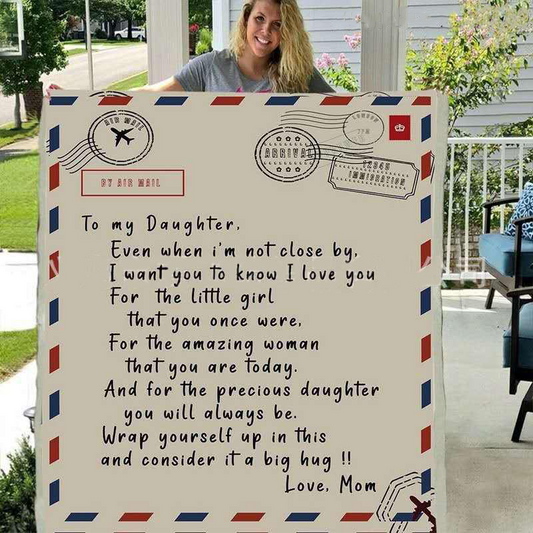 AIR MAIL
LONDON
ARRIVAL
IMMIGRATION
BY AIR MAIL
To my Daughter,
Even when i'm not close by,
I want you to know I love you
For the little girl
that you once were,
For the amazing woman
that you are today.
And for the precious daughter
you will always be.
Wrap yourself up in this
and consider it a big hug !!
Love, Mom